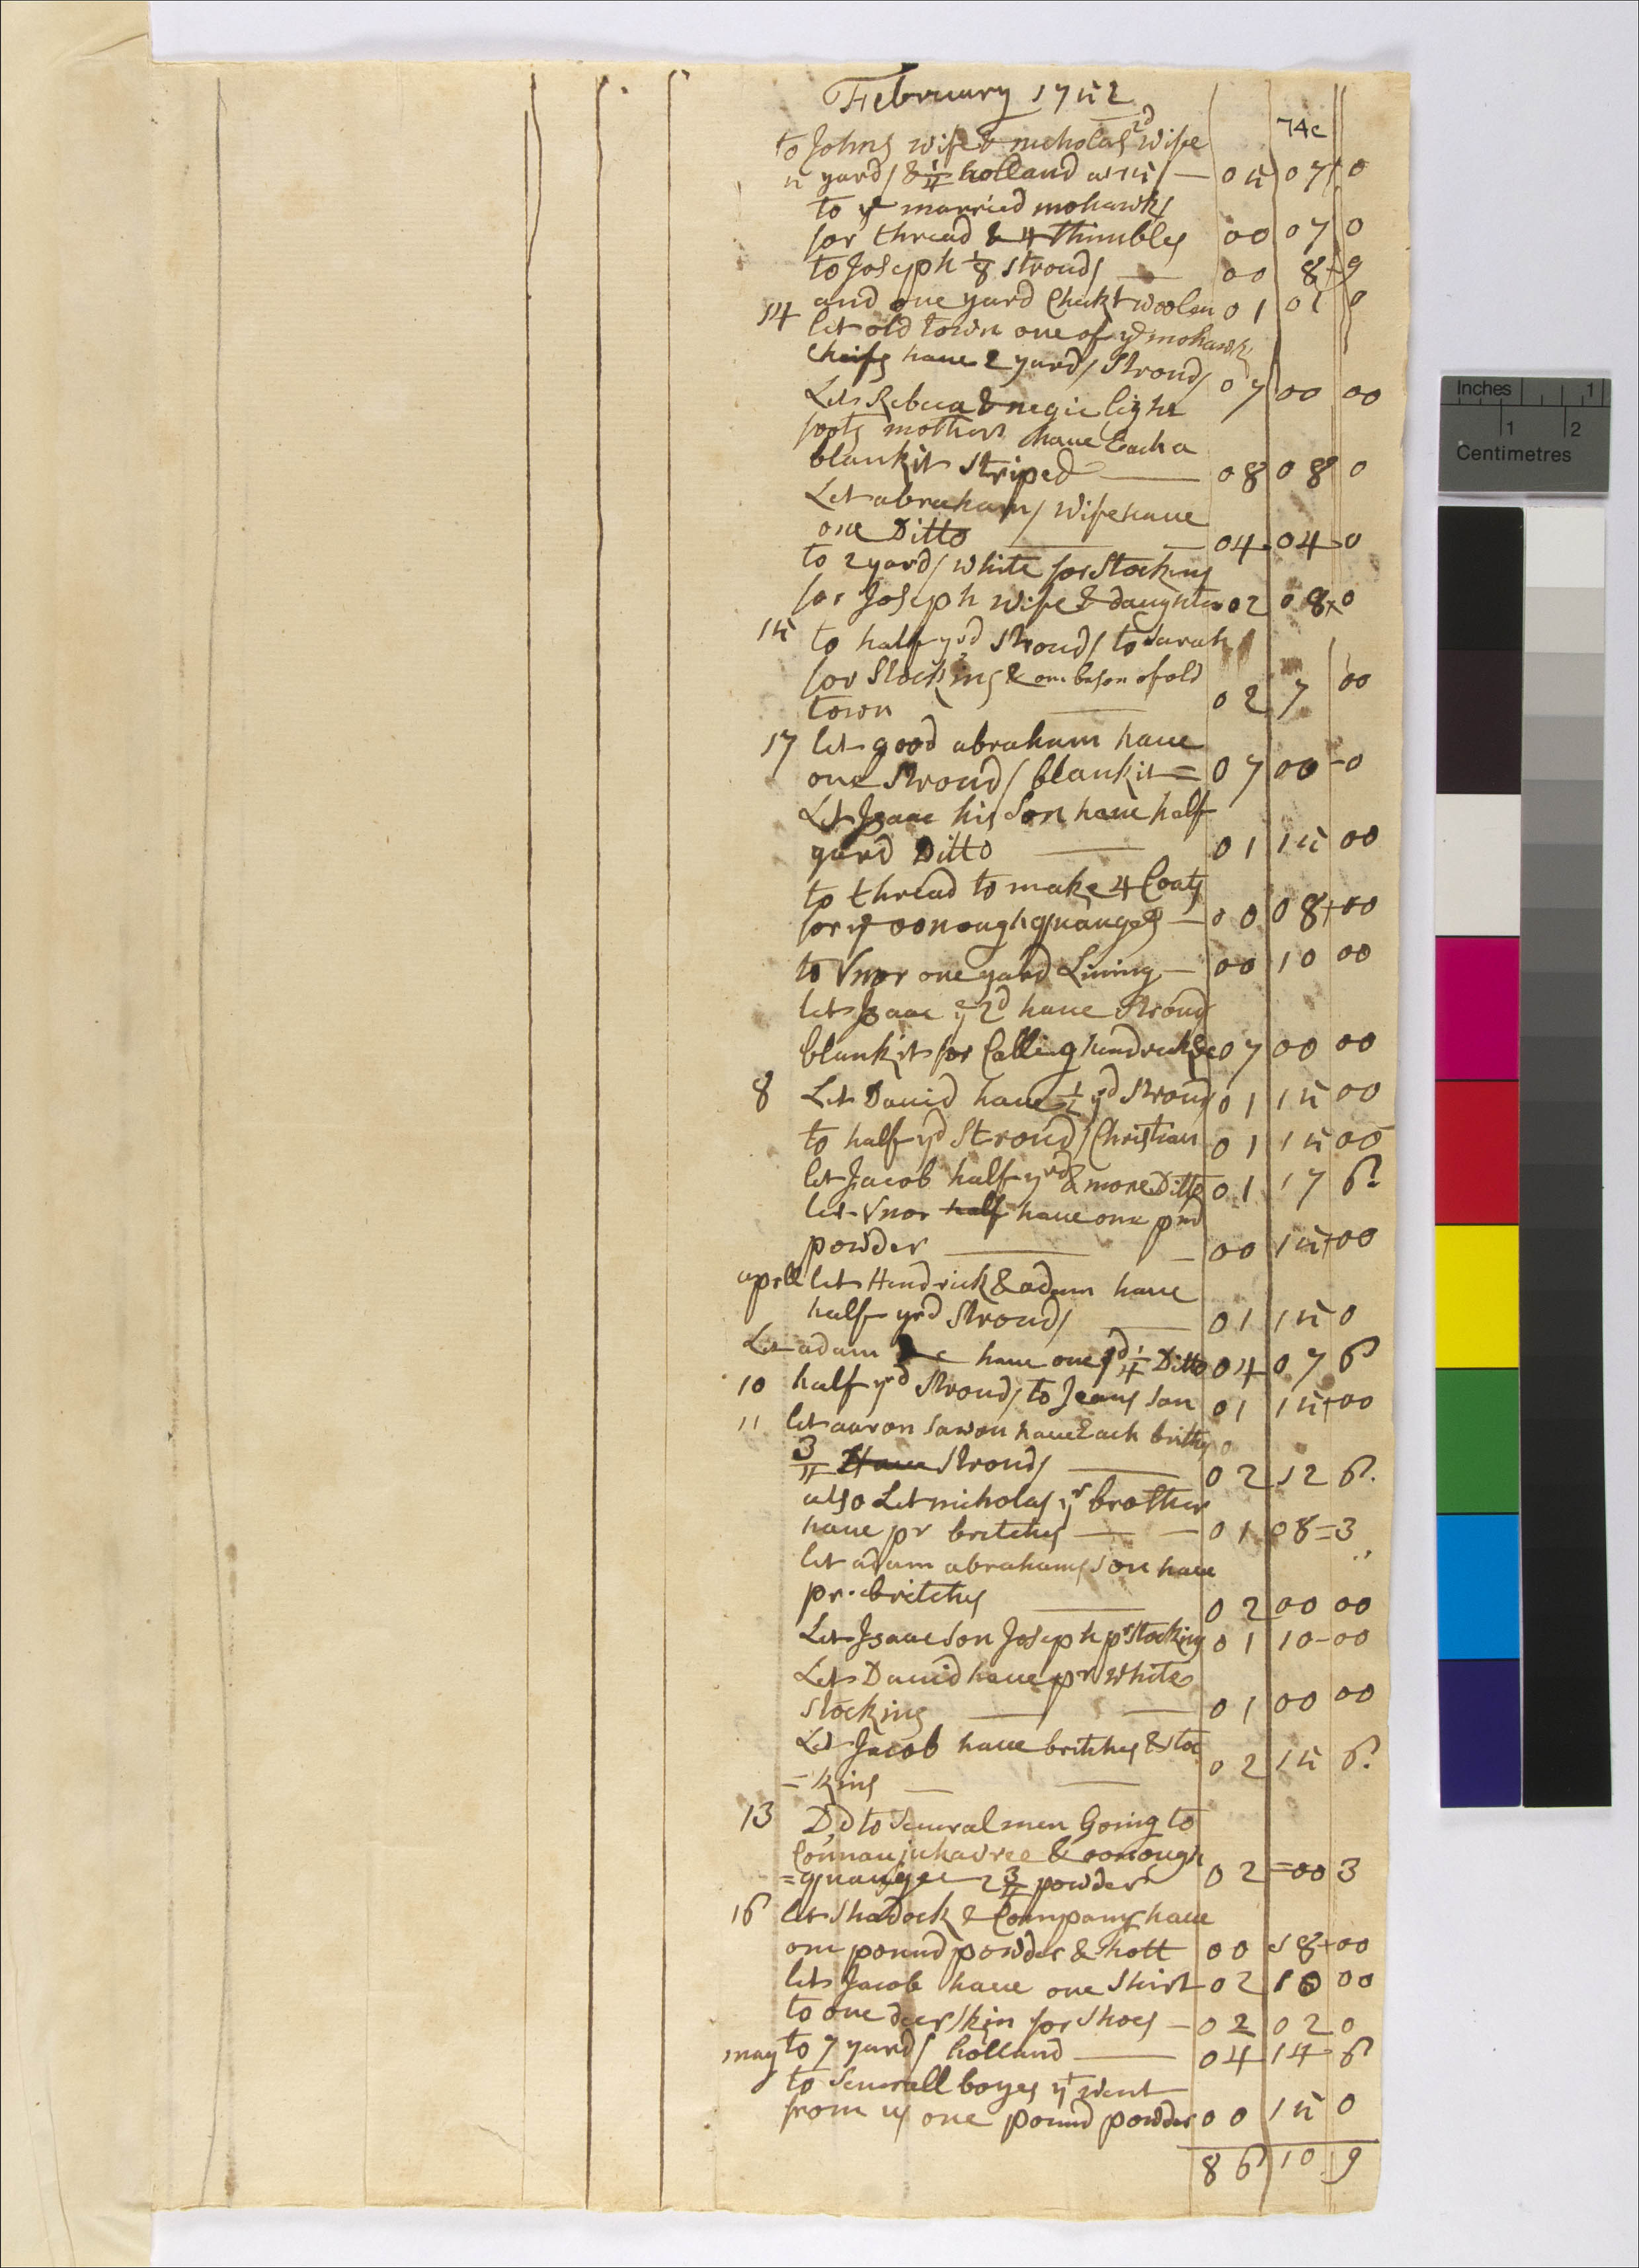 February 1752
74c
to Johns wife & nicholas 2d wife
5 yards & 1/4 holland at 15/ — 05 07 0
to ye married mohawks
for thread & 4 thimbles 00 07 0
to Joseph 1/8 strouds — 00 8 9
and one yard Checkt woolen 01 01 0
14 let old town one of ye mohawk
cheifs have 2 yards Strouds 07 00 00
Let Rebeca & negie light
foots mother have Each a
blankit Striped — 08 08 0
Let abrahams wife have
one Ditto — 04 04 0
to 2 yards white for Stockins
for Joseph wife & daughter 02 08 0
15 to half yrd Strouds to Sarah
for Stockings & one bason of old
town — 02 7 00
17 let good abraham have
one Strouds blankit = 07 00 0
Let Isaac his Son have half
yard Ditto — 01 15 00
to thread to make 4 Coats
for ye oonoughquauges — 00 08 00
to Vnor one yard Lining — 00 10 00
let Isaac ye 2d have Stroud
blankit for Calling hendrick &c 07 00 00
8 Let David have 1/2 yd Strouds 01 15 00
to half yd Strouds Christian 01 15 00
let Jacob half yrd & more Ditto 01 17 6
let Vnor half have one pnd
powder — 00 15 00
aprll let Hendrick & adam have
half yrd Strouds — 01 15 0
Let adam have one yd 1/4 Ditto 04 07 6
10 half yrd Strouds to Jeans son 01 15 00
11 let aaron sawon have Each britthes
3/4 Have Strouds — 02 12 6
also Let nicholas yr brother
have pr britches — 01 08 = 3
let adam abrahams son have
pr britches — 02 00 00
Let Isaac son Joseph pr Stocking 01 10 00
Let David have pr white
Stocking — 01 00 00
Let Jacob have britches & stoc
= kins — 02 15 6
13 Dd to Several men Going to
Connaujuharree & oonough
= quaugee 2 3/4 powder 02 = 00 3
16 let Shadock & Company have
one pound powder & Shott 00 18 00
let Jacob have one Shirt 02 10 00
to one deer skin for Shoes — 02 02 0
may to 7 yards holland — 04 14 6
to Severall boyes yt went
from us one pound powder 00 15 0
86 10 9
Inches 1
1 2
Centimetres